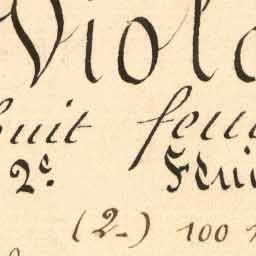 Viol
huit feui
2e. Flui
(2-) 100